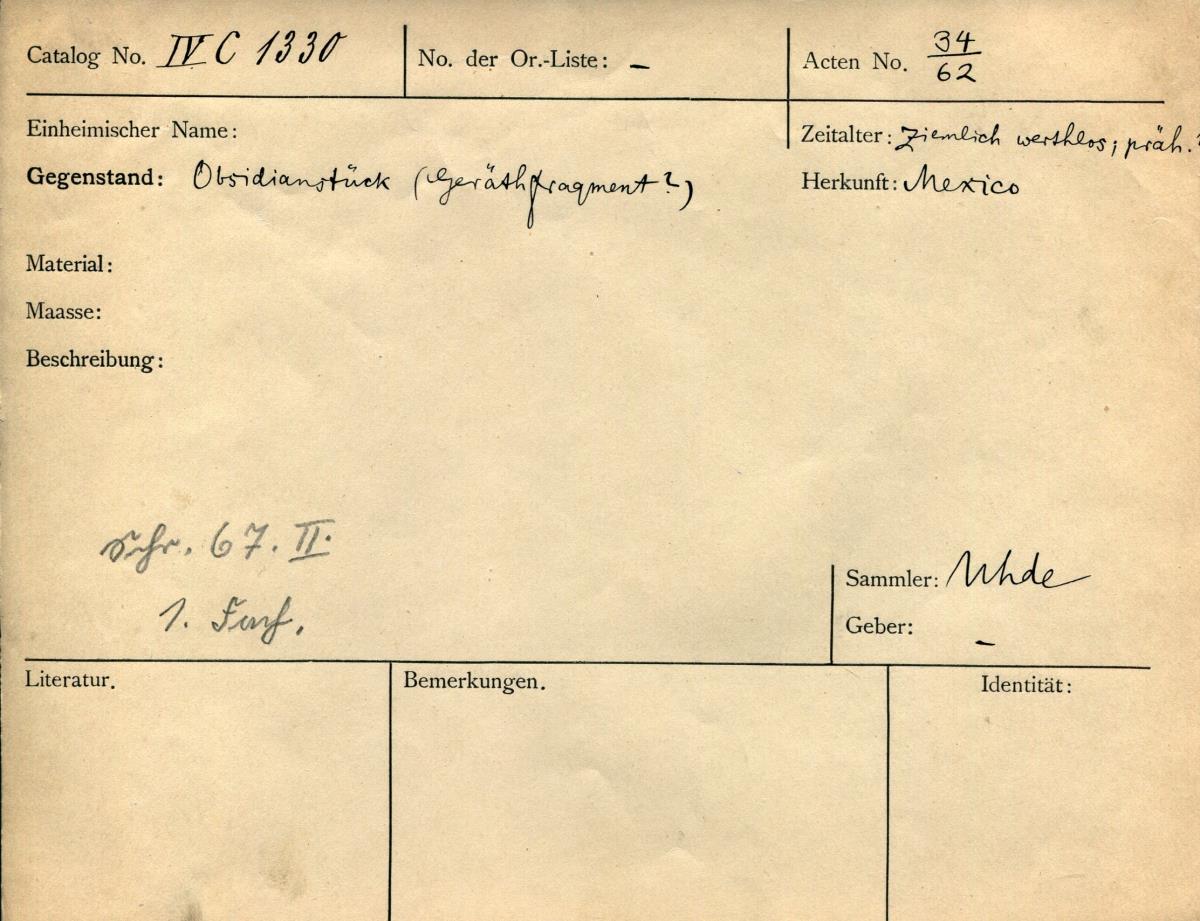 Catalog No. IV C 1330
No. der Or.-Liste: –
Acten No. 34/62
Einheimischer Name:
Zeitalter: ziemlich werthlos; präh.?
Gegenstand: Obsidianstück (Geräthfragment?)
Herkunft: Mexico
Material:
Maasse:
Beschreibung:
Schr. 67. II.
1. Fach.
Sammler: Uhde
Geber: –
Literatur.
Bemerkungen.
Identität: